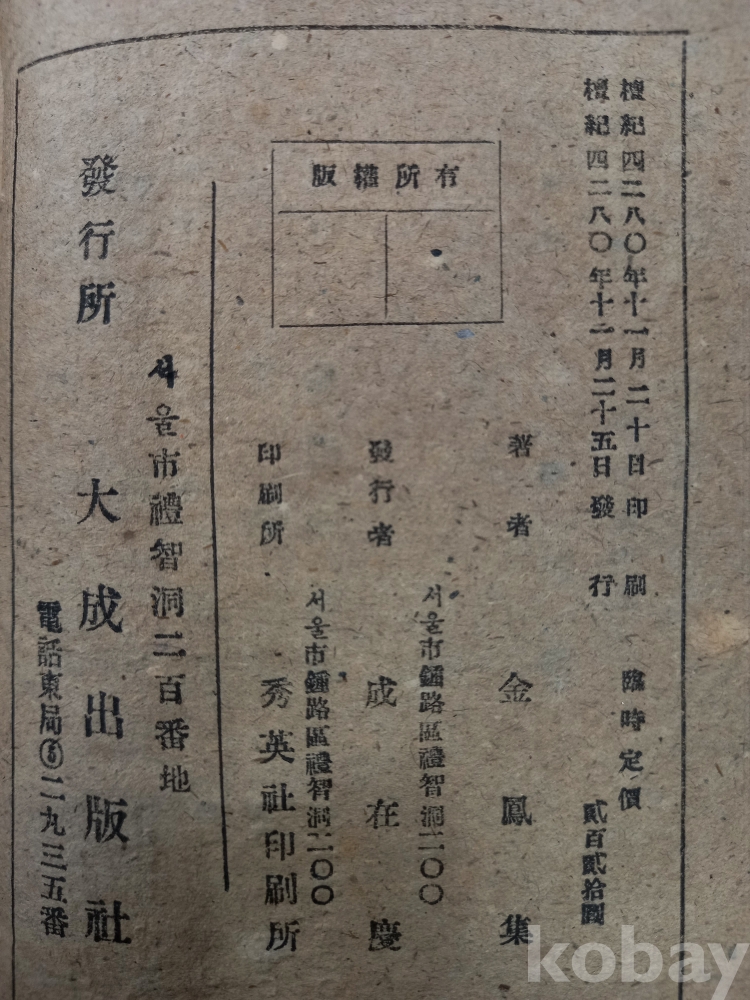 檀紀四二八〇年十一月二十日印刷
檀紀四二八〇年十一月二十五日發行
臨時定價
貳百貳拾圓
版權所有
著者 金鳳集
서울市鍾路區禮智洞二〇〇
發行者 成在慶
서울市鍾路區禮智洞二〇〇
印刷所 秀英社印刷所
서울市禮智洞二百番地
發行所 大成出版社
電話東局⑥二九三五番
kobay